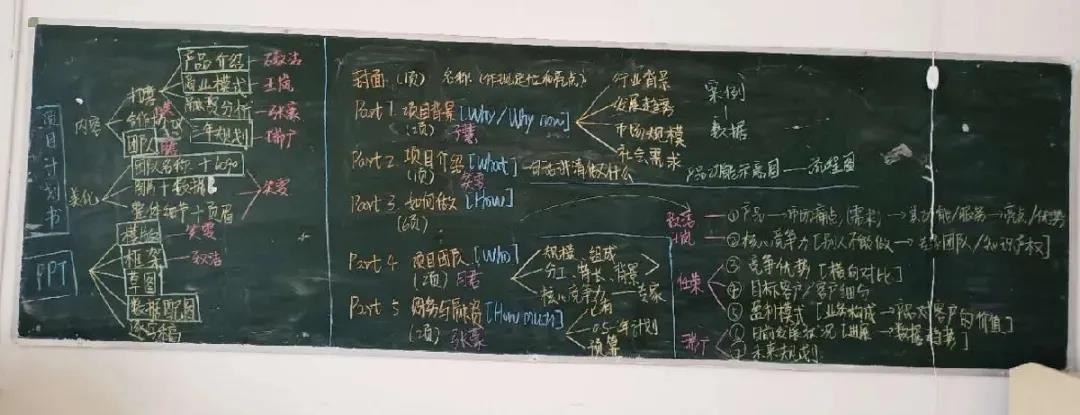 项目计划书
PPT
内容
打磨
产品介绍 政洁
商业模式 王岚
融资分析 张豪
三年规划 瑞广
合作
团队
美化
团队名称+logo
图片+数据
整体细节+页眉
笑雯
模版 笑雯
框架 政洁
草图
数据配图
逐字稿
封面 (1页) 名称 (体现定位和亮点)
Part 1 项目背景 [Why/Why now]
(2页)
行业背景
发展趋势
市场规模
社会需求
案例
数据
Part 2 项目介绍 [What] 一句话讲清做什么
(1页) 笑雯
产品功能示意图 流程图
Part 3 如何做 [How]
(6页)
政洁
王岚
①产品—市场痛点 (需求)→其功能/服务—亮点/优势
②核心竞争力 [别人不能做→专家团队/知识产权]
③竞争优势 [横向对比]
④目标客户/客户细分
⑤盈利模式 [业务构成→产品对客户的价值]
瑞广
⑥目前发展状况 [进展→数据趋势]
⑦未来规划
Part 4 项目团队 [Who]
(2页)
规模、组成
分工、特长、背景
核心竞争力—专家
Part 5 财务与融资 [How much]
(2页) 张豪
0.5-1年计划
预算